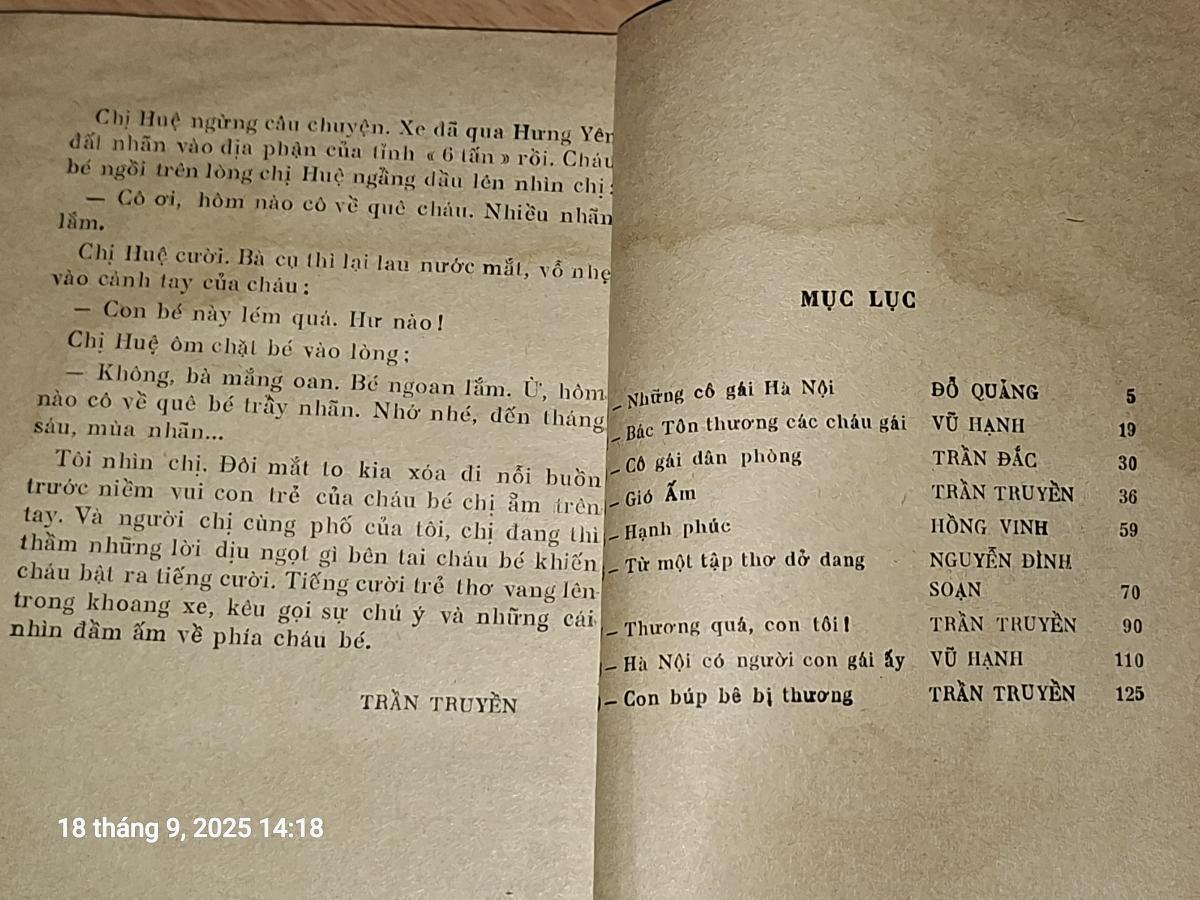 Chị Huệ ngừng câu chuyện. Xe đã qua Hưng Yên
đất nhãn vào địa phận của tỉnh « 6 tấn » rồi. Cháu
bé ngồi trên lòng chị Huệ ngẩng đầu lên nhìn chị:
— Cô ơi, hôm nào cô về quê cháu. Nhiều nhãn
lắm.
Chị Huệ cười. Bà cụ thì lại lau nước mắt, vỗ nhẹ
vào cánh tay của cháu:
— Con bé này lém quá. Hư nào!
Chị Huệ ôm chặt bé vào lòng;
— Không, bà mắng oan. Bé ngoan lắm. Ừ, hôm
nào cô về quê bé trẩy nhãn. Nhớ nhé, đến tháng
sáu, mùa nhãn...
Tôi nhìn chị. Đôi mắt to kia xóa đi nỗi buồn
trước niềm vui con trẻ của cháu bé chị ẵm trên
tay. Và người chị cùng phố của tôi, chị đang thì
thầm những lời dịu ngọt gì bên tai cháu bé khiến
cháu bật ra tiếng cười. Tiếng cười trẻ thơ vang lên
trong khoang xe, kêu gọi sự chú ý và những cái
nhìn đầm ấm về phía cháu bé.
TRẦN TRUYỀN
MỤC LỤC
— Những cô gái Hà Nội ĐỖ QUẢNG 5
— Bác Tôn thương các cháu gái VŨ HẠNH 19
— Cô gái dân phòng TRẦN ĐẮC 30
— Gió Ấm TRẦN TRUYỀN 36
— Hạnh phúc HỒNG VINH 59
— Từ một tập thơ dở dang NGUYỄN ĐÌNH
SOẠN 70
— Thương quá, con tôi! TRẦN TRUYỀN 90
— Hà Nội có người con gái ấy VŨ HẠNH 110
— Con búp bê bị thương TRẦN TRUYỀN 125
18 tháng 9, 2025 14:18